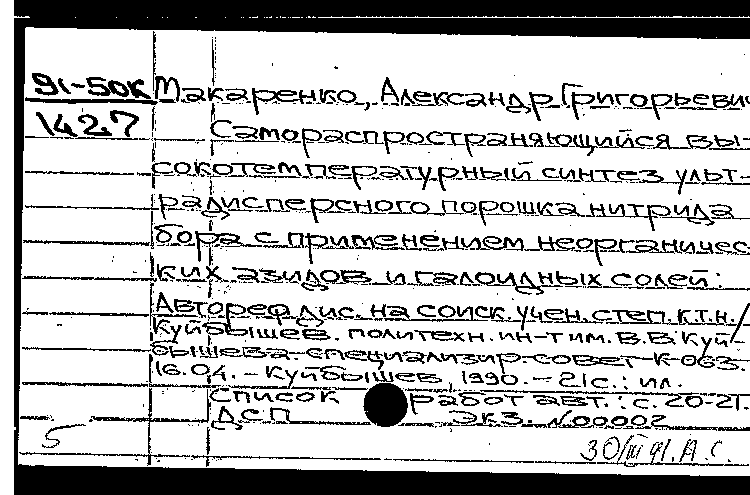 91-50к Макаренко, Александр Григорьевич
1427 Самораспространяющийся вы-
сокотемпературный синтез ульт-
радисперсного порошка нитрида
бора с применением неорганичес-
ких азидов и галоидных солей:
Автореф дис. на соиск. учен. степ. к.т.н./
Куйбышев. политехн. ин-т им. В.В. Куй-
бышева. специализир. совет К 063.
16.04. - Куйбышев, 1990. - 21 с.: ил.
Список работ авт.: с. 20-21.
ДСП Экз. №00002
5 30/III 91. А.С.